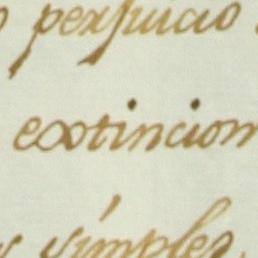 perjuicio
extincion
simples